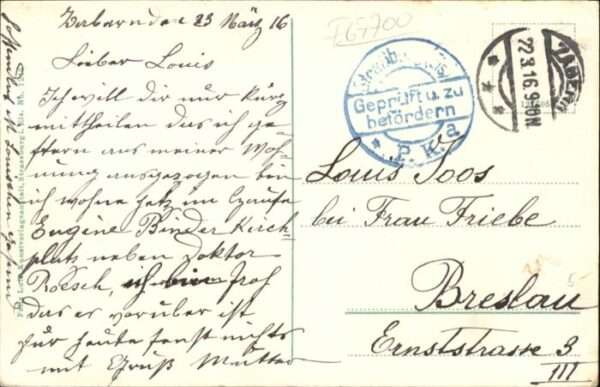 Zabern den 23 März 16
Lieber Louis
Ich will dir nur kurz
mittheilen das ich ge-
stern aus meiner Woh-
nung ausgezogen bin
ich wohne jetz im Hause
Eugene Binder Kirch-
platz neben Doktor
Roesch, ich bin froh
das es vorüber ist
für heute sonst nichts
mit Gruß Mutter
F67700
Geprüft u. zu
befördern
P. K. a.
ZABERN
22.3.16.9-10N
Louis Soos
bei Frau Friebe
Breslau
Ernststrasse 3
III